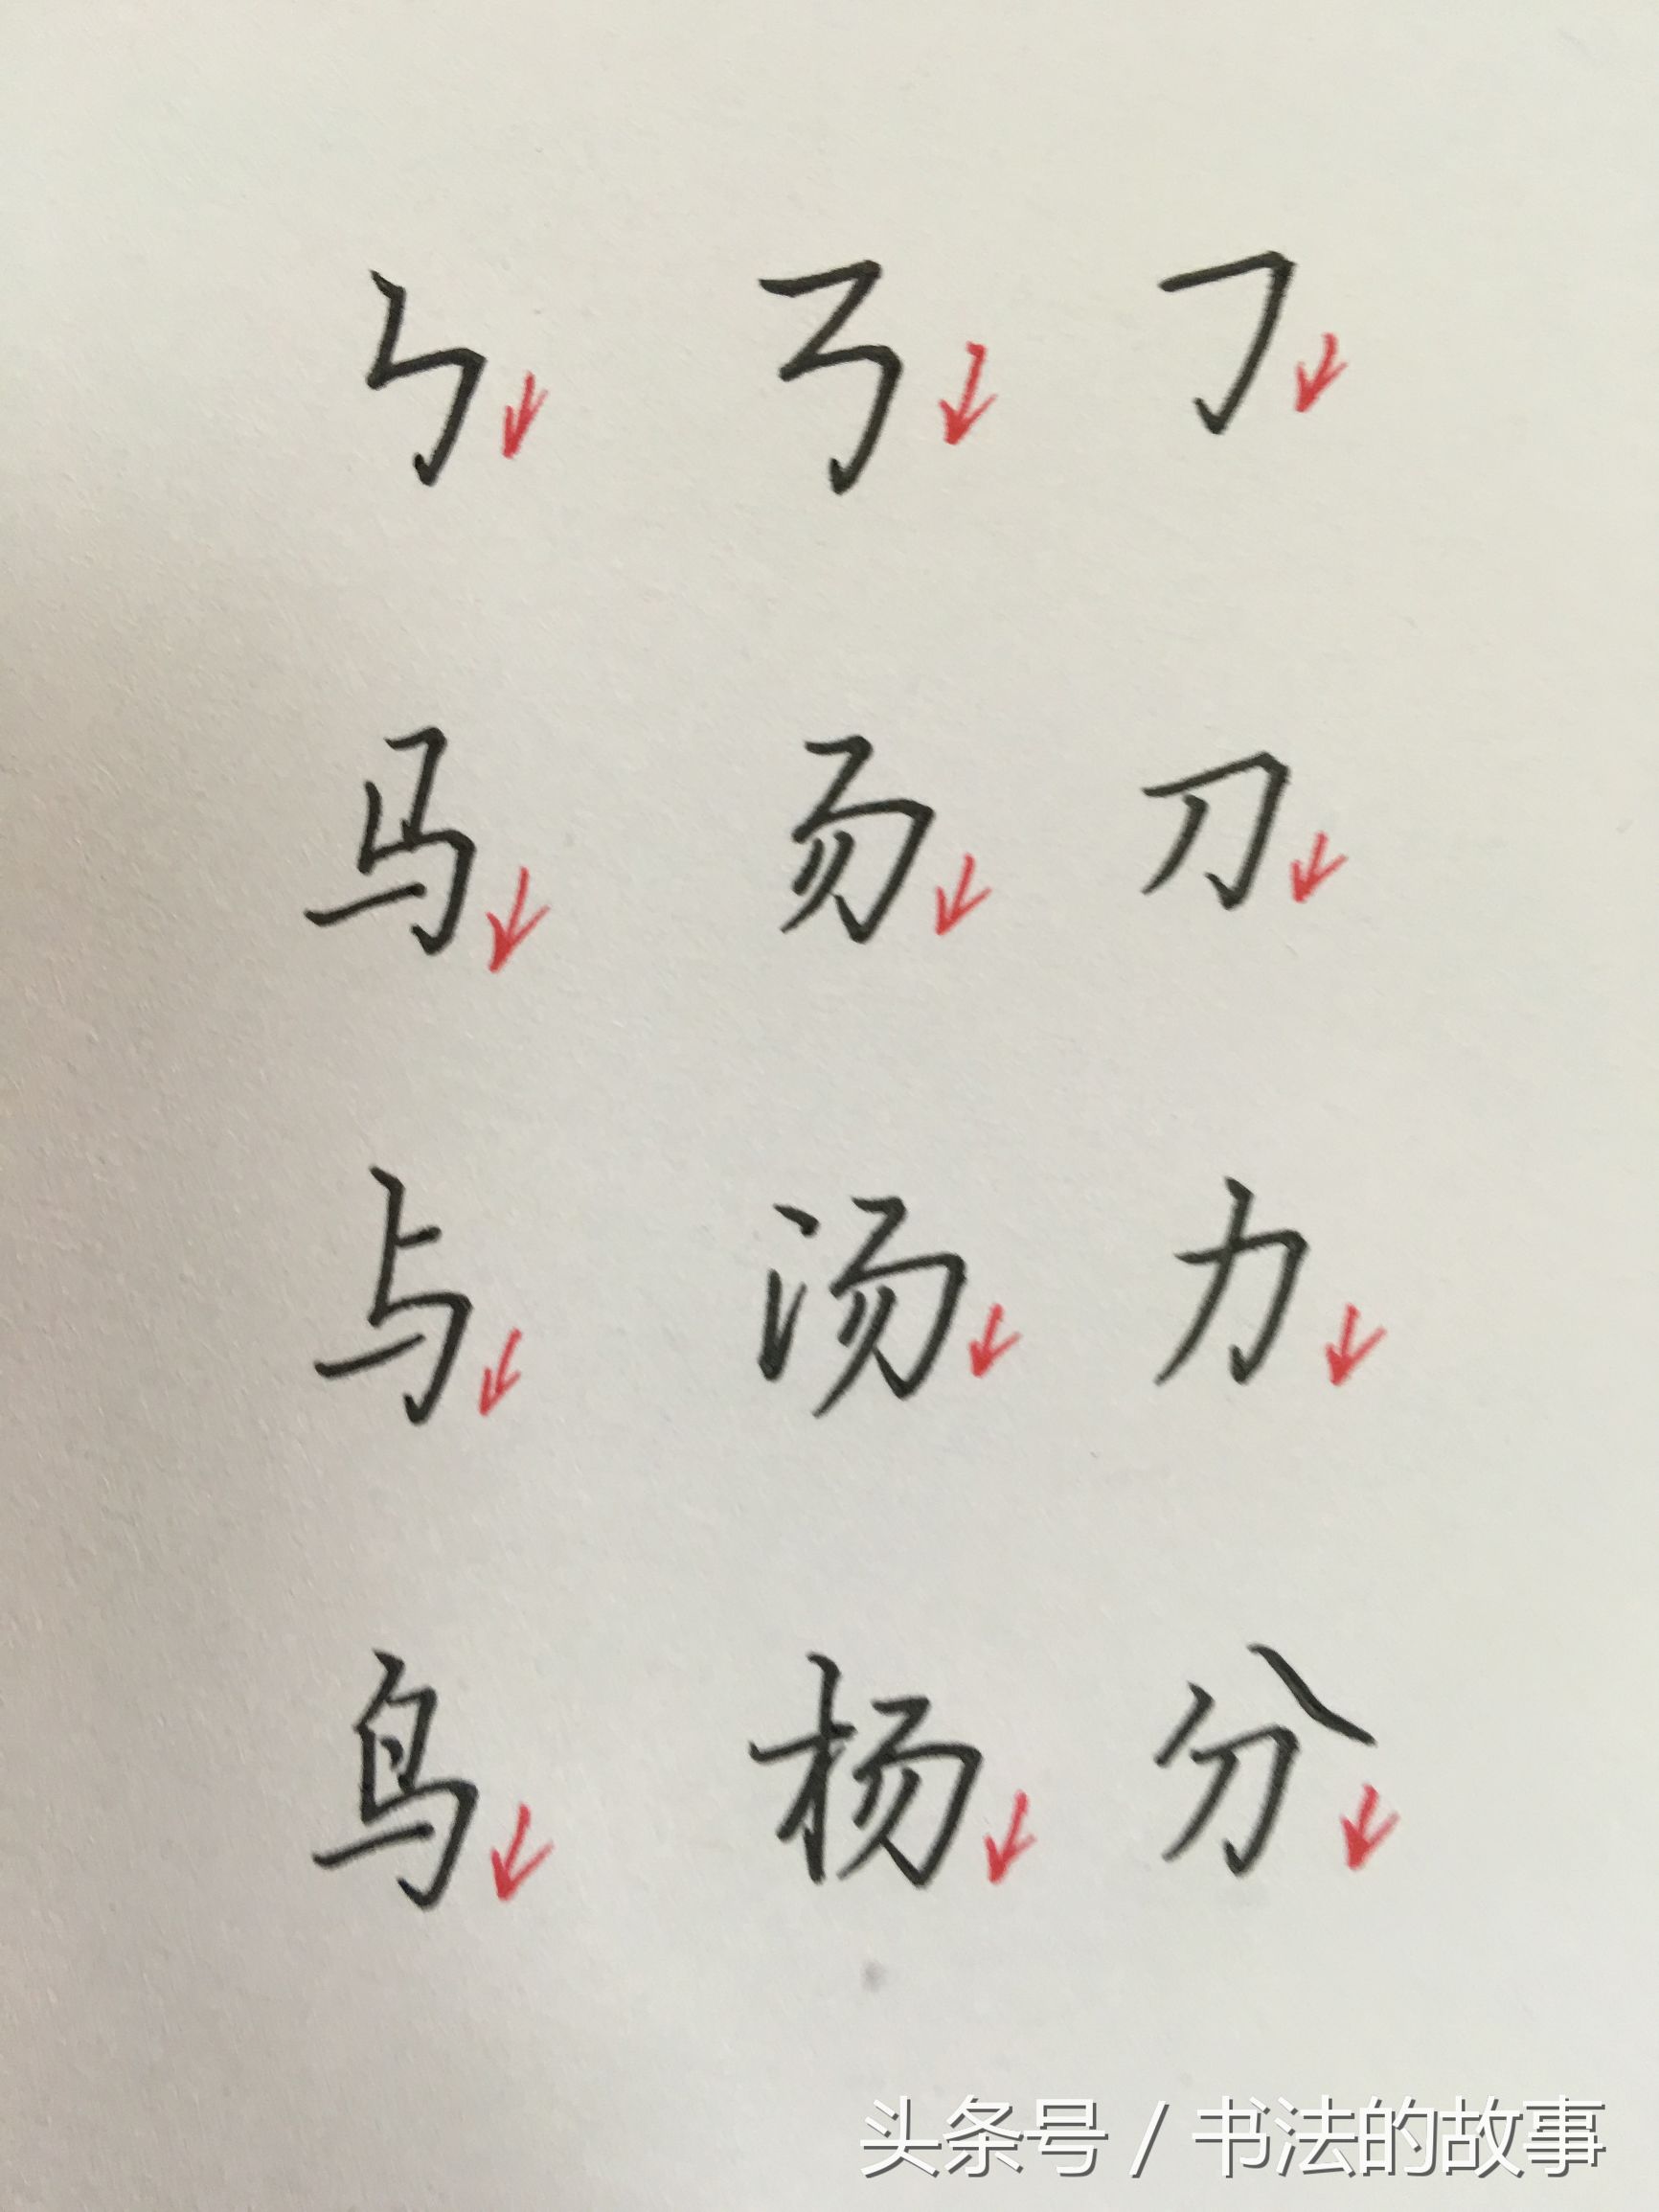 ㇉ ㇡ 𠃌
马 𠃓 刀
与 汤 力
鸟 杨 分
头条号 / 书法的故事